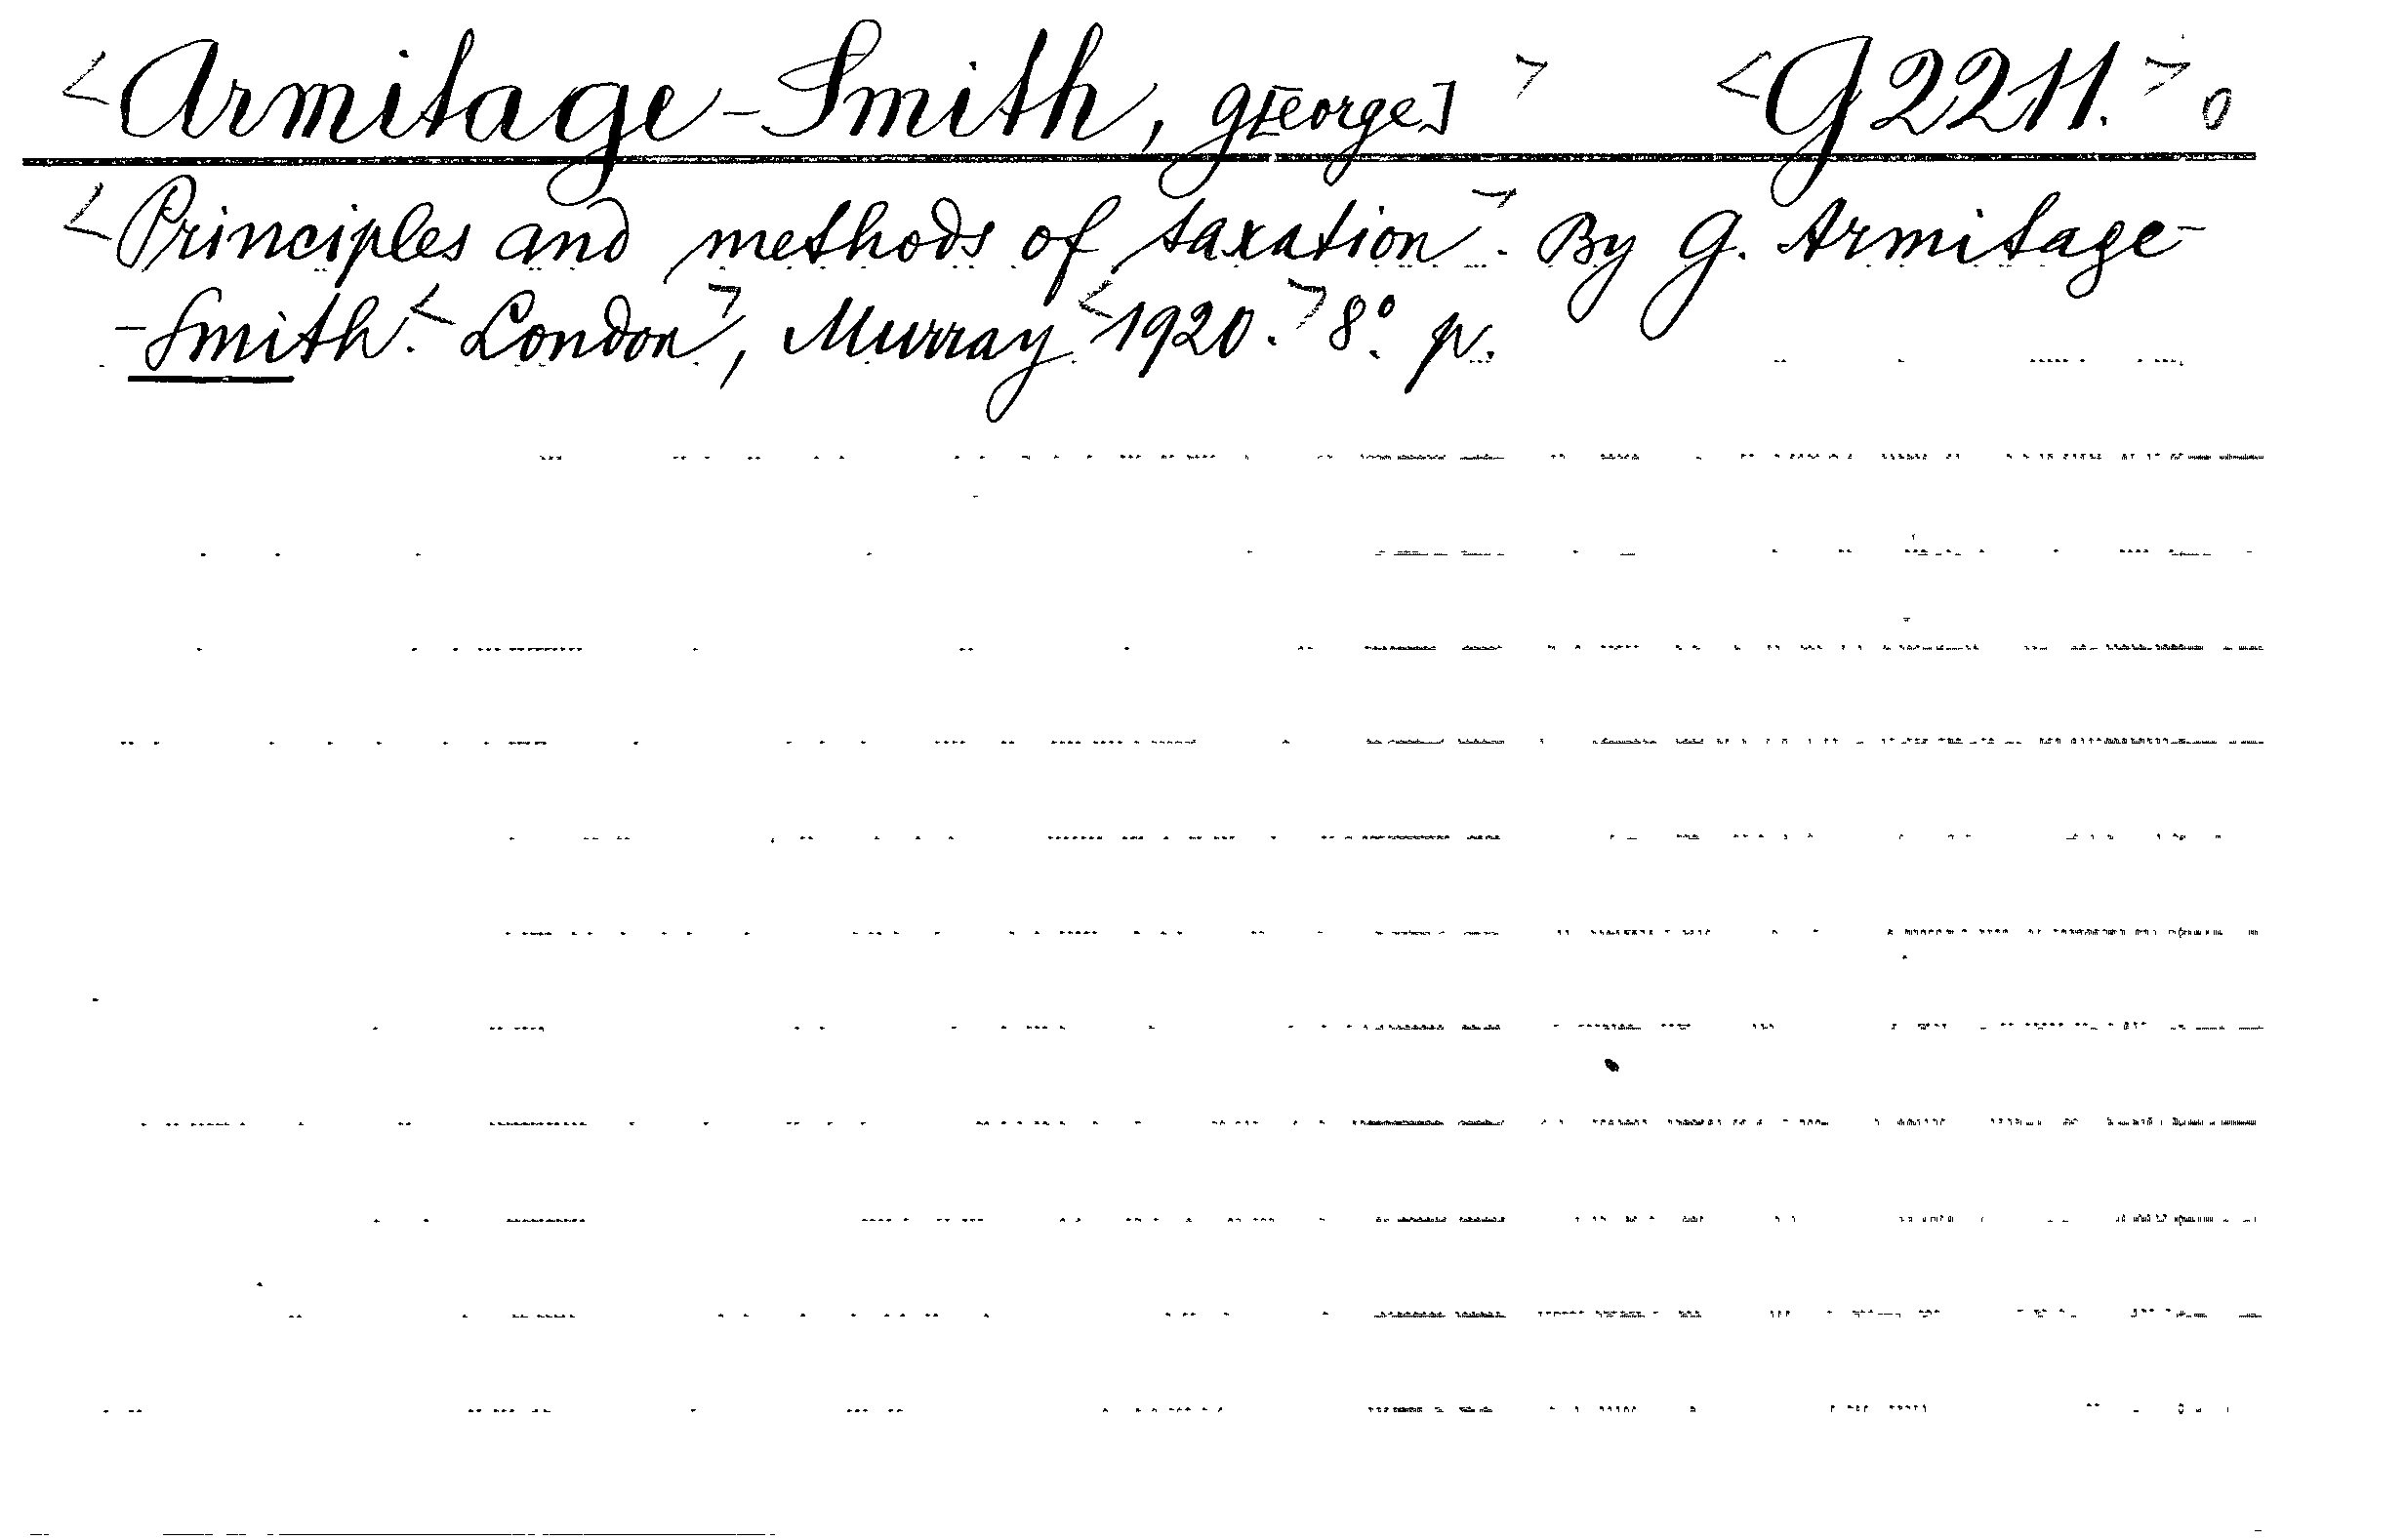 <Armitage-Smith, G[eorge]> <G 2211.> 0
<Principles and methods of taxation>. By G. Armitage-
-Smith. <London>, Murray <1920.> 8°. p.